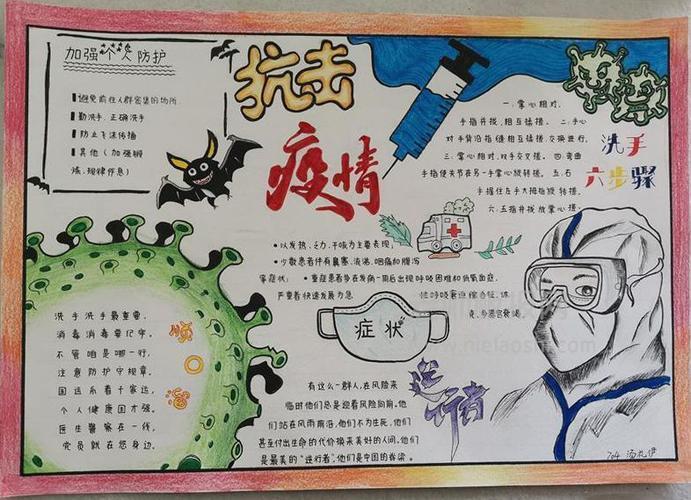 加强个人防护
避免前往人群密集的场所
勤洗手.正确洗手
防止飞沫传播
其他(加强锻
炼.规律作息)
抗击
疫情
一.掌心相对,
手指并拢,相互揉搓。二.手心
对手背沿指缝相互揉搓,交换进行,
三.掌心相对,双手交叉搓。四.弯曲
手指使关节在另一手掌心旋转搓。五.右
手握住左手大拇指旋转搓.
六.五指并拢放掌心搓.
洗手
六步骤
以发热、乏力、干咳为主要表现,
少数患者伴有鼻塞、流涕、咽痛和腹泻
等症状;
重症患者多在发病一周后出现呼吸困难和低氧血症,
严重者快速发展为急
性呼吸窘迫综合征、
症状
洗手洗手最重要,
消毒消毒要记牢。
不管咱是哪一行,
注意防护守规章。
国运系着千家运,
个人健康国才强。
医生警察在一线,
党员就在您身边。
顺
口
溜
逆行者
有这么一群人,在风险来
临时他们总是迎着风险向前。他
们站在风雨前沿,他们不为生死,他们
甚至付出生命的代价换来美好的人间,他们
是最美的“逆行者”,他们是中国的脊梁。
704